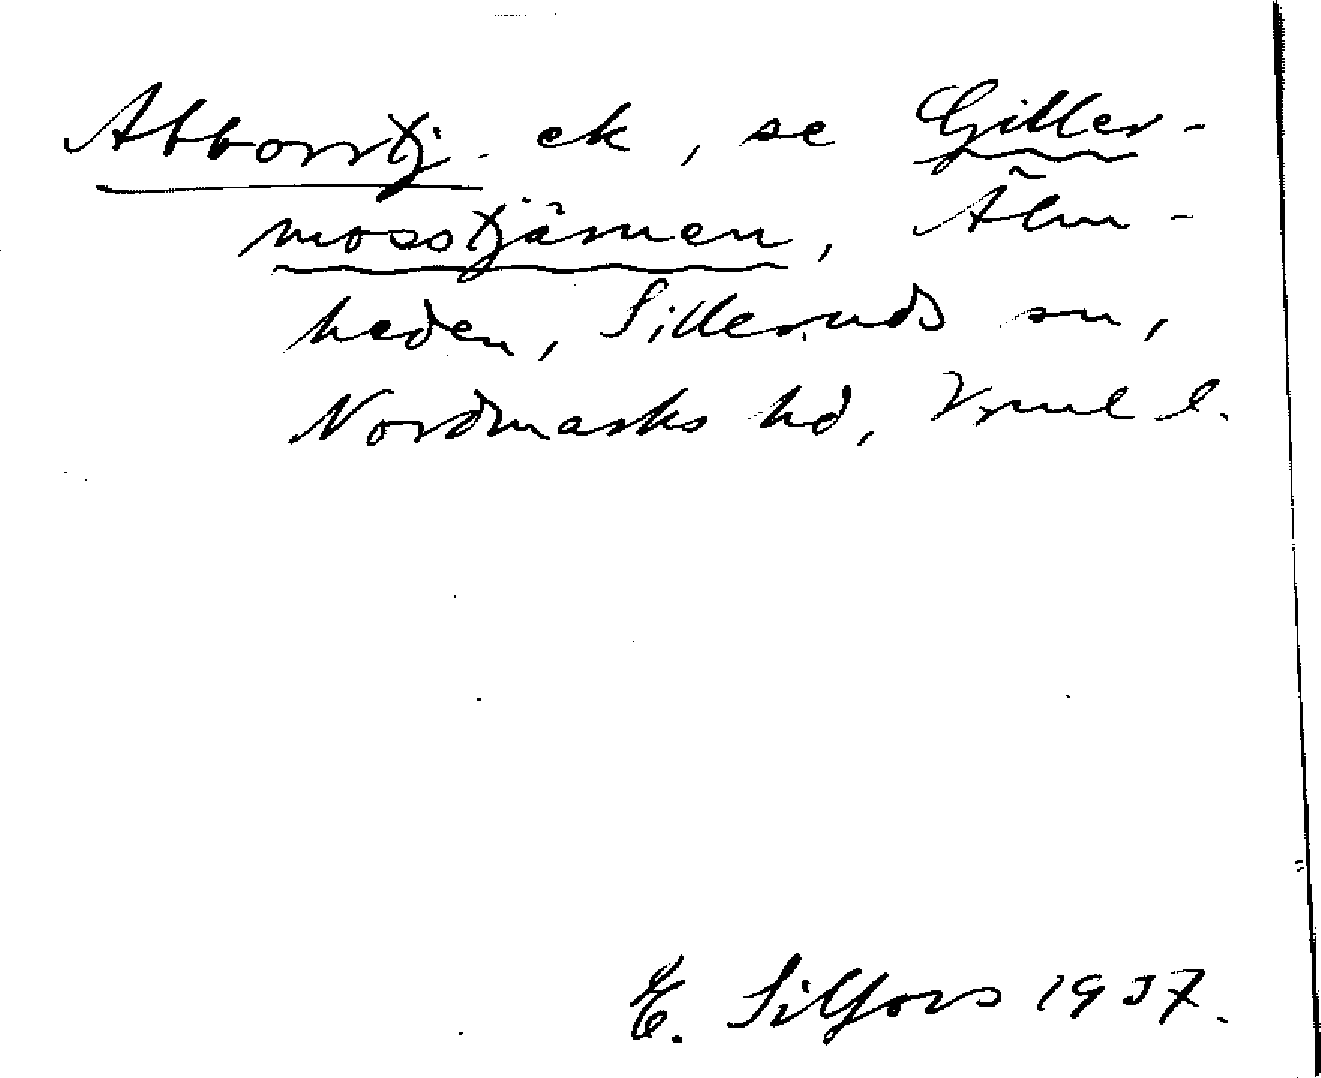 Abborrtj. ek, se Giller-
mosstjärnen, Älm-
heden, Silleruds sn,
Nordmarks hd, Vrml l.
E. Silfors 1937.